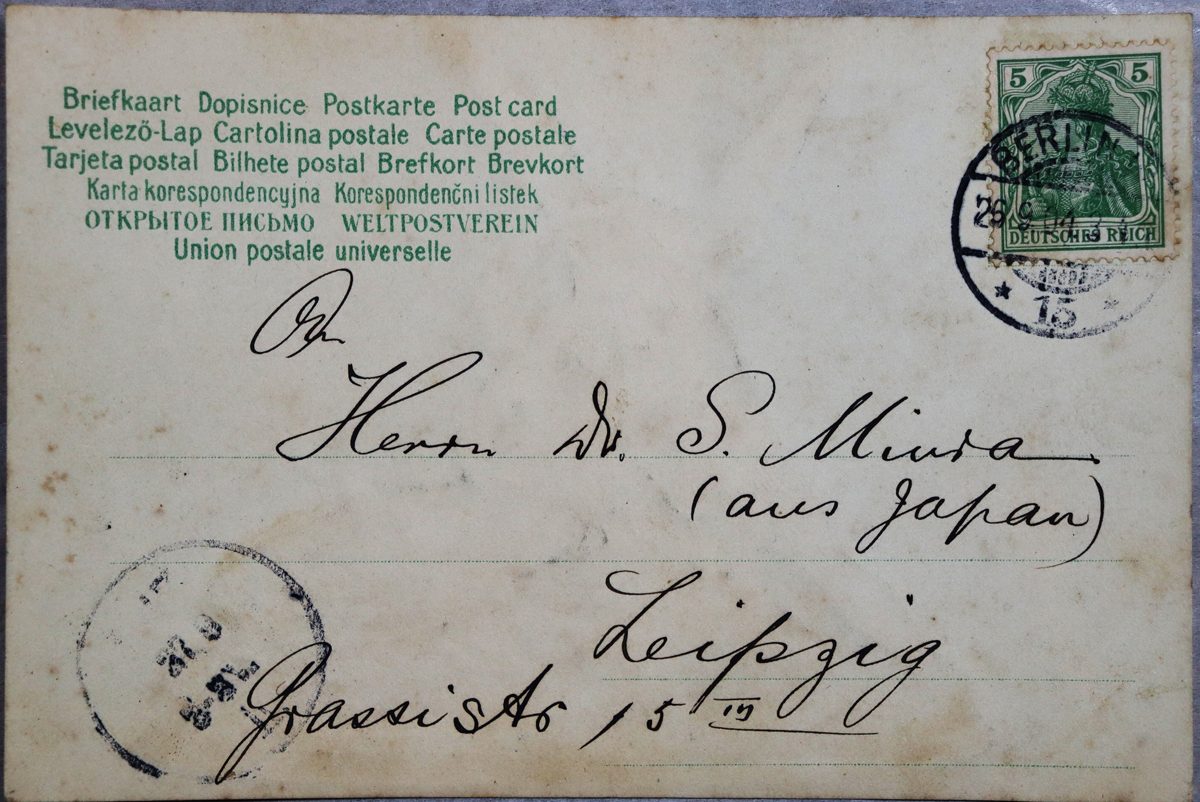 Briefkaart Dopisnice Postkarte Post card
Levelező-Lap Cartolina postale Carte postale
Tarjeta postal Bilhete postal Brefkort Brevkort
Karta korespondencyjna Korespondenčni listek
ОТКРЫТОЕ ПИСЬМО WELTPOSTVEREIN
Union postale universelle
5 5
DEUTSCHES REICH
BERLIN
26 9 04
* 15 *
An
Herrn Dr. S. Miura
(aus Japan)
Leipzig
Grassistr 15 III